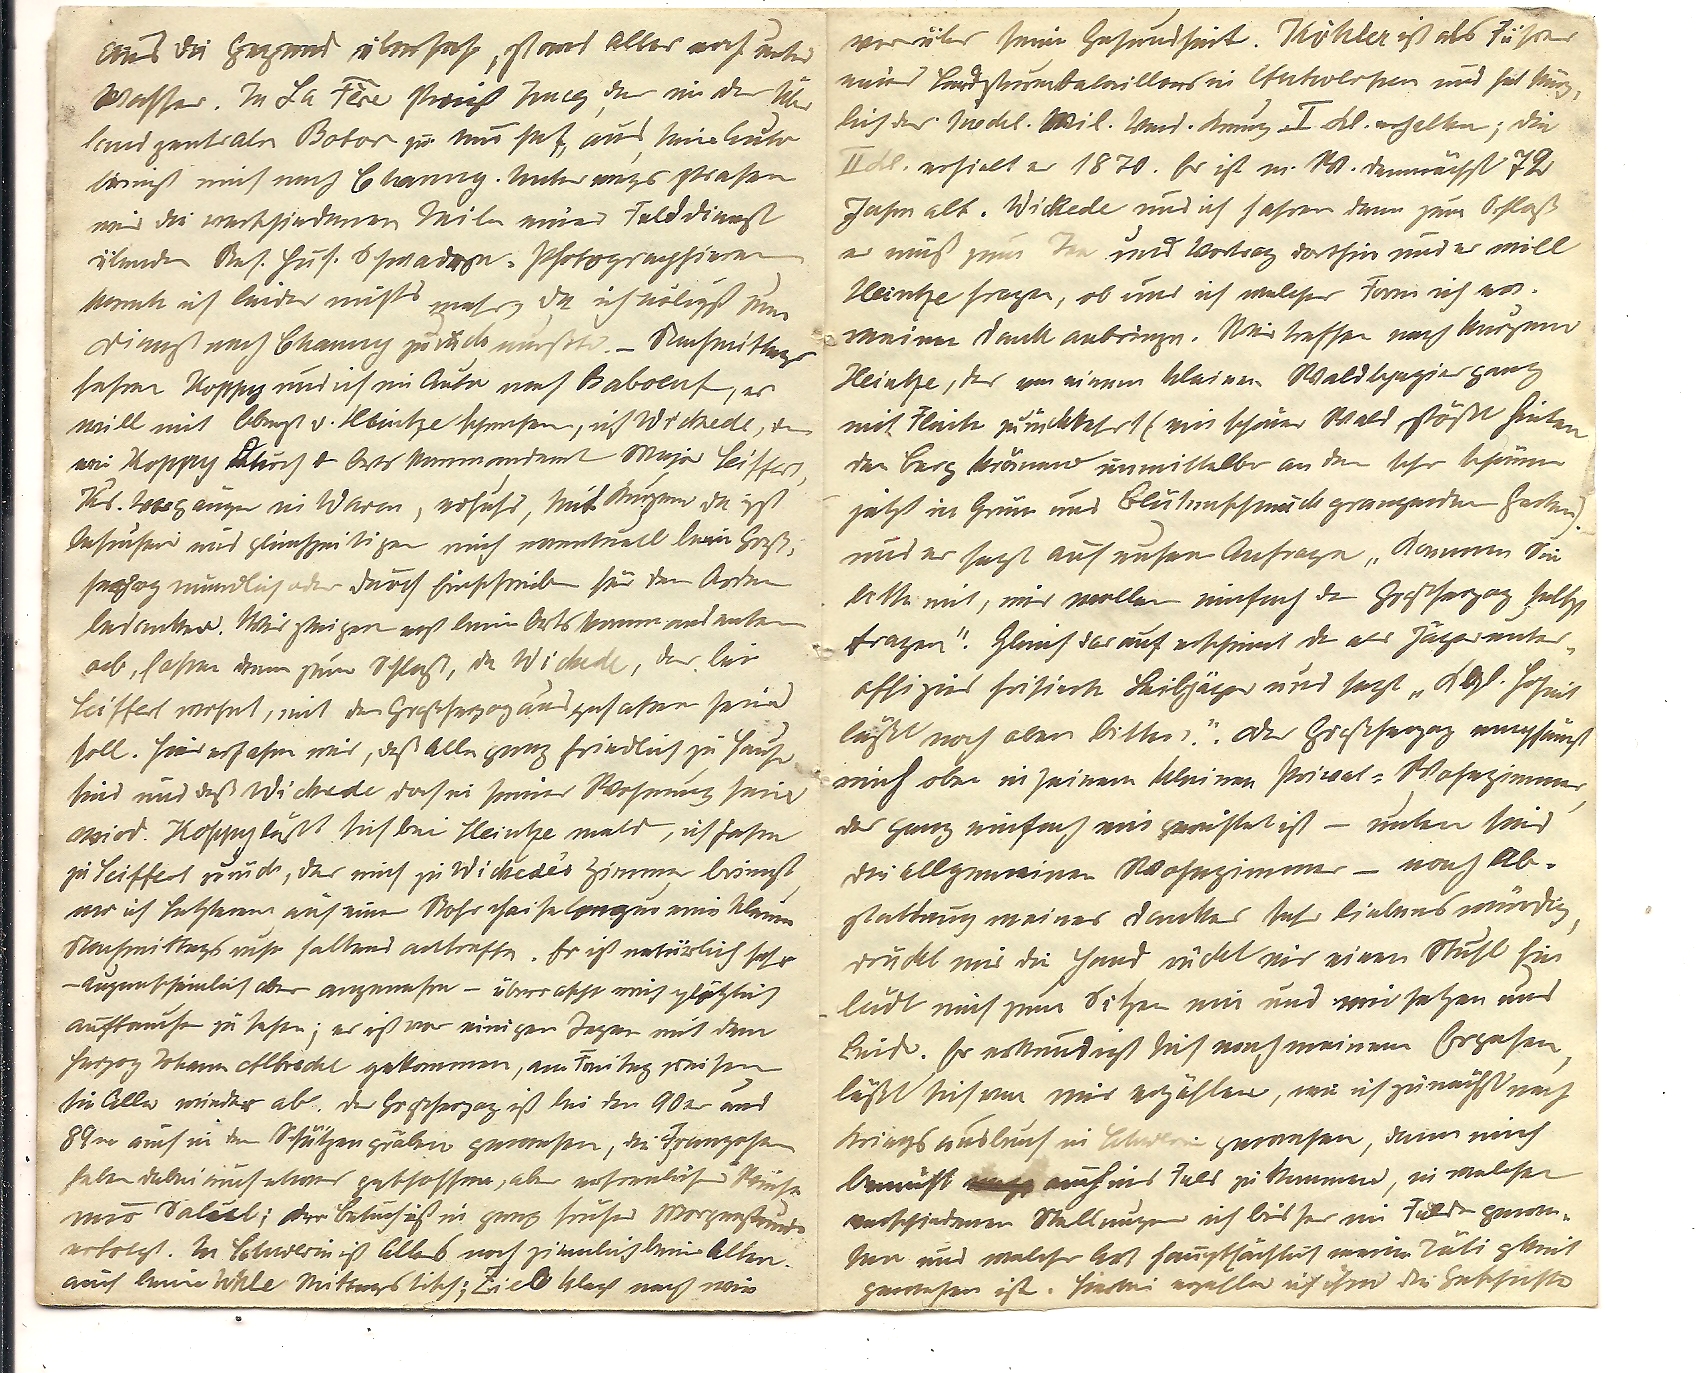 aus die Gegend übersah, stand alles noch unter
Wasser. In La Fère steigt Tracy, der in der Über
landzentrale Botor zu tun hat, aus, sein Auto
bringt mich nach Chauny. Unterwegs trafen
wir die verschiedenen Teile einer Felddienst
übenden Res. Hus. Schwadron. Photographieren
konnte ich leider nichts mehr, da ich eiligst zum
Dienst nach Chauny zurück mußte. – Nachmittags
fahren Koppy und ich im Auto nach Baboeuf, er
will mit Oberst v. Heintze sprechen, ich Wickede, den
wie Koppy durch d. Ortskommandant Major Seiffert,
Vorgänger in Waren, erfuhr, mit kurzem da ist
besuchen und gleichzeitig mich eventuell beim Groß-
herzog mündlich oder durch Einschreiben für den Orden
bedanken. Wir steigen erst beim Ortskommandanten
ab, fahren dann zum Schloß, da Wickede, der bei
Seiffert wohnt, mit dem Großherzog ausgefahren sein
soll. Hier erfahren wir, daß Alle ganz friedlich zu Hause
sind und daß Wickede doch in seiner Wohnung sein
wird. Koppy läßt sich bei Heintze melden, ich fahre
zu Seiffert zurück, der mich zu Wickede's Zimmer bringt,
wo ich letzteren auf einer Rohrchaiselongue eine kleine
Nachmittagsruhe haltend antreffe. Er ist natürlich sehr
– augenscheinlich aber angenehm – überrascht mich plötzlich
auftauchen zu sehen; er ist vor einigen Tagen mit dem
Herzog Johann Albrecht gekommen, am Freitag reisen
sie Alle wieder ab. Der Großherzog ist bei den 90er und
89er auch in den Schützengräben gewesen, die Franzosen
haben dabei auch etwas geschossen, aber
Salut; der Besuch ist in ganz früher Morgenstunde
erfolgt. In Schwerin ist Alles noch ziemlich beim Alten.
auch beim Uhle Mittagstisch; klagt nach wie
vor über seine Gesundheit. Köhler ist als Führer
eines Landsturmbataillons in Antwerpen und hat kürz-
lich das Meckl. Mil. Verd. Kreuz I Kl. erhalten; die
II Kl. erhielt er 1870. Er ist m. W. demnächst 72
Jahre alt. Wickede und ich fahren dann zum Schloß
er muß zum Tee und Vortrag dorthin und er will
Heintze fragen, ob und in welcher Form ich
meinen Dank anbringe. Wir treffen nach kurzem
Heintze, der von einem kleinen Waldspaziergang
mit Flinte zurückkehrt (ein schöner Wald stößt hinten
den Berg krönend unmittelbar an den sehr schönen
jetzt in Grün und Blütenschmuck prangenden Garten)
und er sagt auf unsere Anfrage „Kommen Sie
bitte mit, wir wollen einfach den Großherzog selbst
fragen". Gleich darauf erscheint der als Jägerunter-
offizier Leibjäger und sagt „Kgl. Hoheit
läßt nach oben bitten". Der Großherzog empfängt
mich oben in seinem kleinen Privat-Wohnzimmer,
das ganz einfach eingerichtet ist – unten sind
die allgemeinen Wohnzimmer – nach Ab-
stattung meines Dankes sehr liebenswürdig,
drückt mir die Hand rückt mir einen Stuhl hin
lädt mich zum Sitzen ein und wir setzen uns
Beide. Er erkundigt sich nach meinem Ergehen,
läßt sich von mir erzählen, wie ich zunächst nach
Kriegsausbruch in Schwerin gewesen, dann mich
bemüht auch ins Feld zu kommen, in welchen
verschiedenen Stellungen ich bisher im Felde gewe-
sen und welcher Art hauptsächlich meine Tätigkeit
gewesen ist. Hierbei erzähle ich ihm die Geschichte